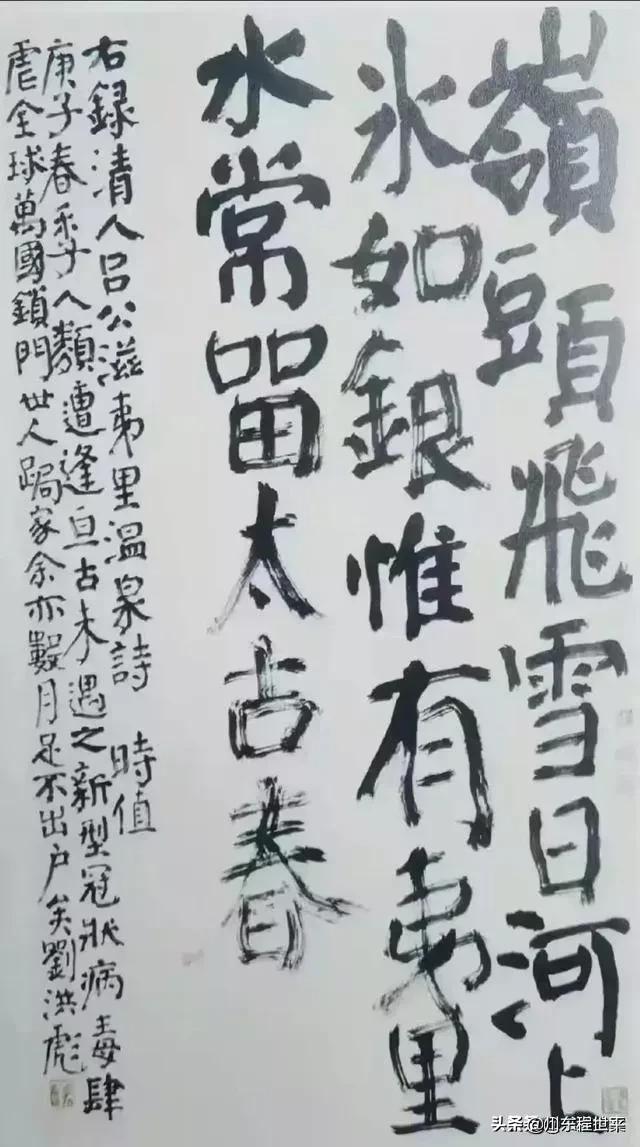 嶺頭飛雪日河上
氷如銀惟有夷里
水常畱太古春
右録清人呂公滋夷里温泉詩 時值
庚子春季人類遭逢亘古未遇之新型冠狀病毒肆
虐全球萬國鎖門世人跼家余亦數月足不出户矣劉洪彪
头条@山东程世平